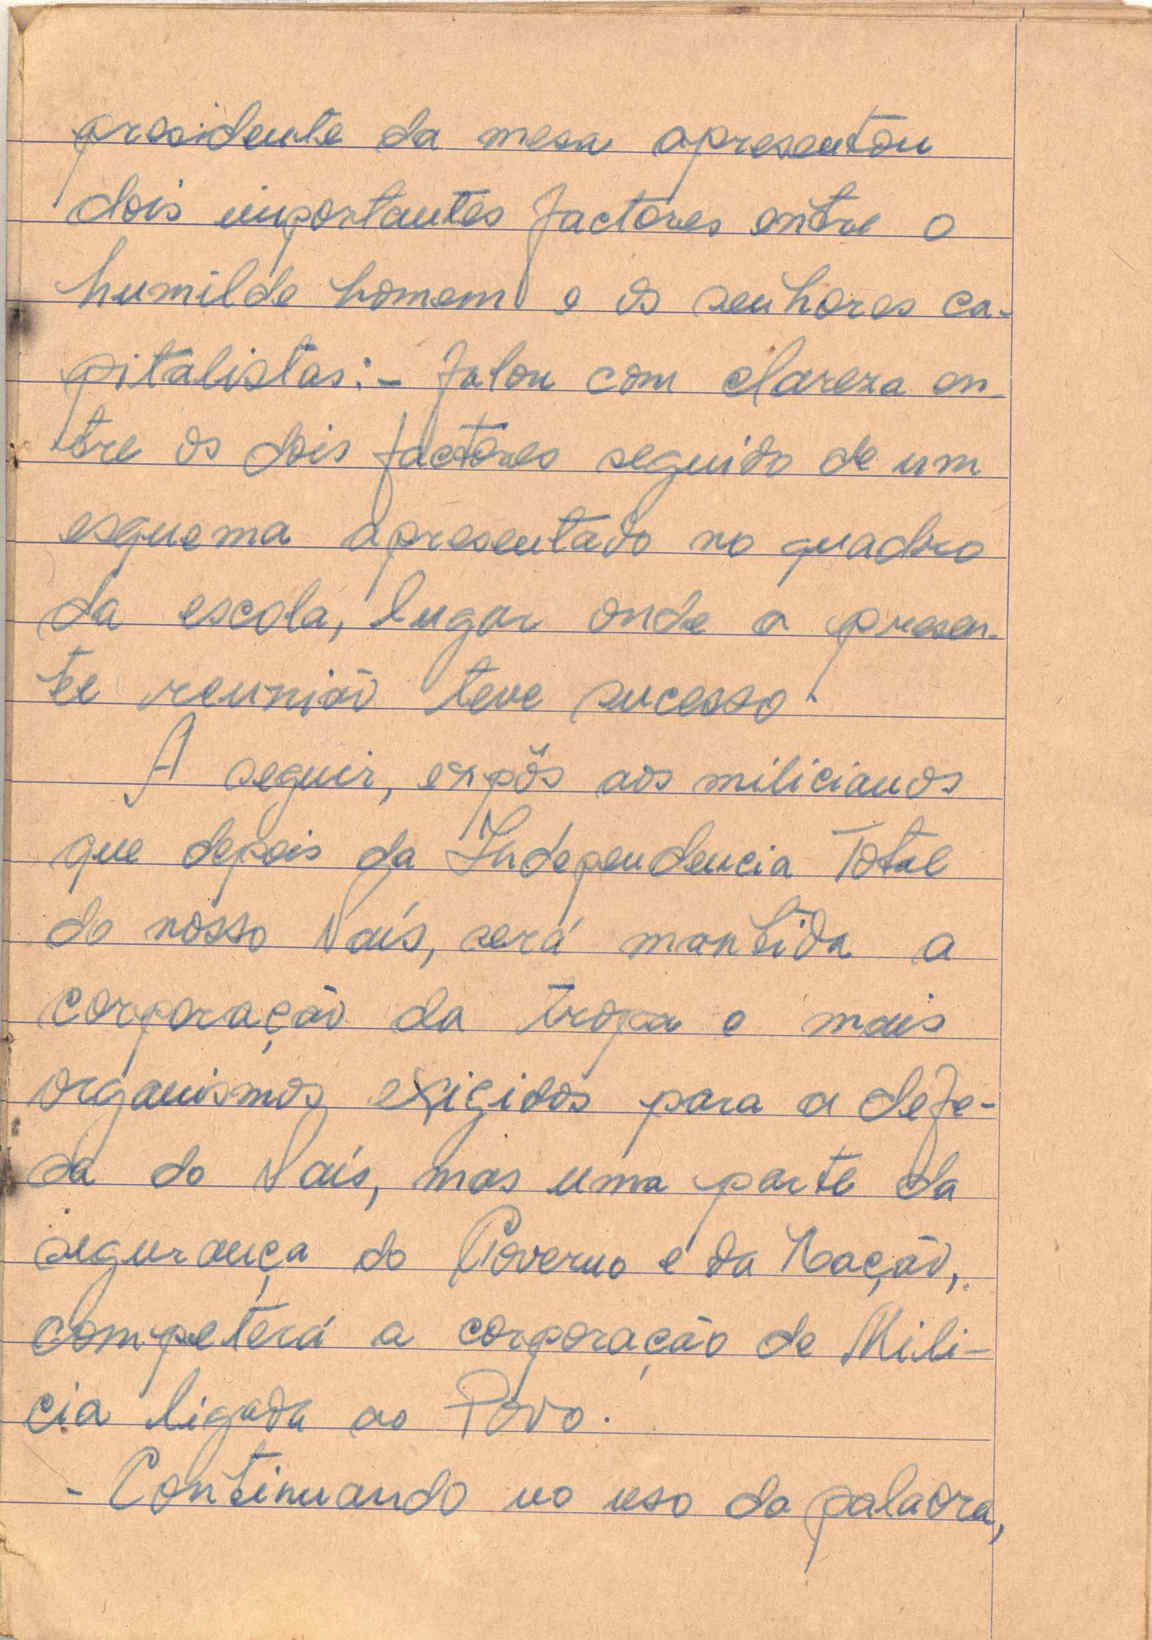 presidente da mesa apresentou
dois importantes factores entre o
humilde homem e os senhores ca-
pitalistas:- falou com clareza en-
tre os dois factores seguido de um
esquema apresentado no quadro
da escola, lugar onde a presen-
te reunião teve sucesso.
A seguir, expôs aos milicianos
que depois da Independencia Total
do nosso País, será mantida a
corporação da tropa e mais
organismos exigidos para a defe-
sa do País, mas uma parte da
segurança do Governo e da Nação,
competerá a corporação de Milí-
cia ligada ao Povo.
- Continuando no uso da palavra,